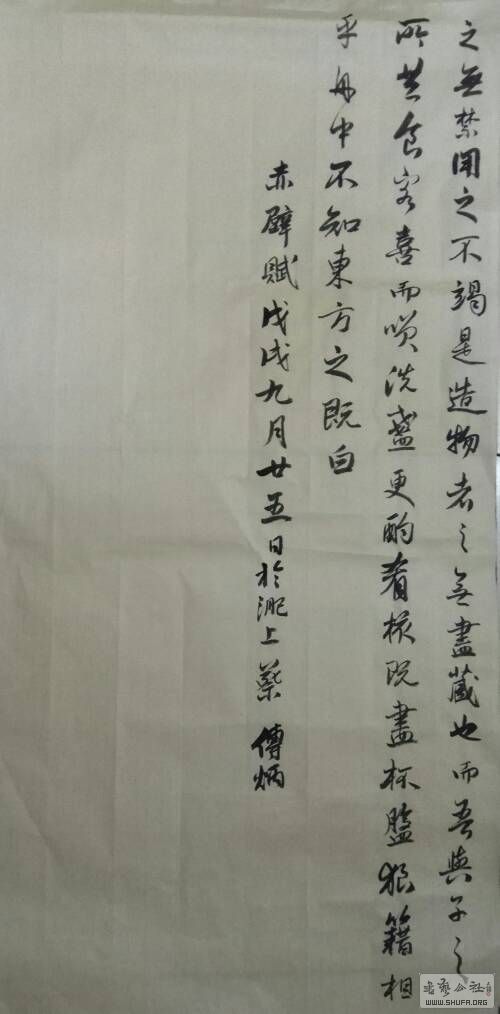 之無禁用之不竭是造物者之無盡藏也而吾與子之
所共食客喜而笑洗盞更酌肴核既盡杯盤狼籍相
乎舟中不知東方之既白
赤壁賦戊戌九月廿五日於淝上蔡傳炳
書藝公社
WWW.SHUFA.ORG